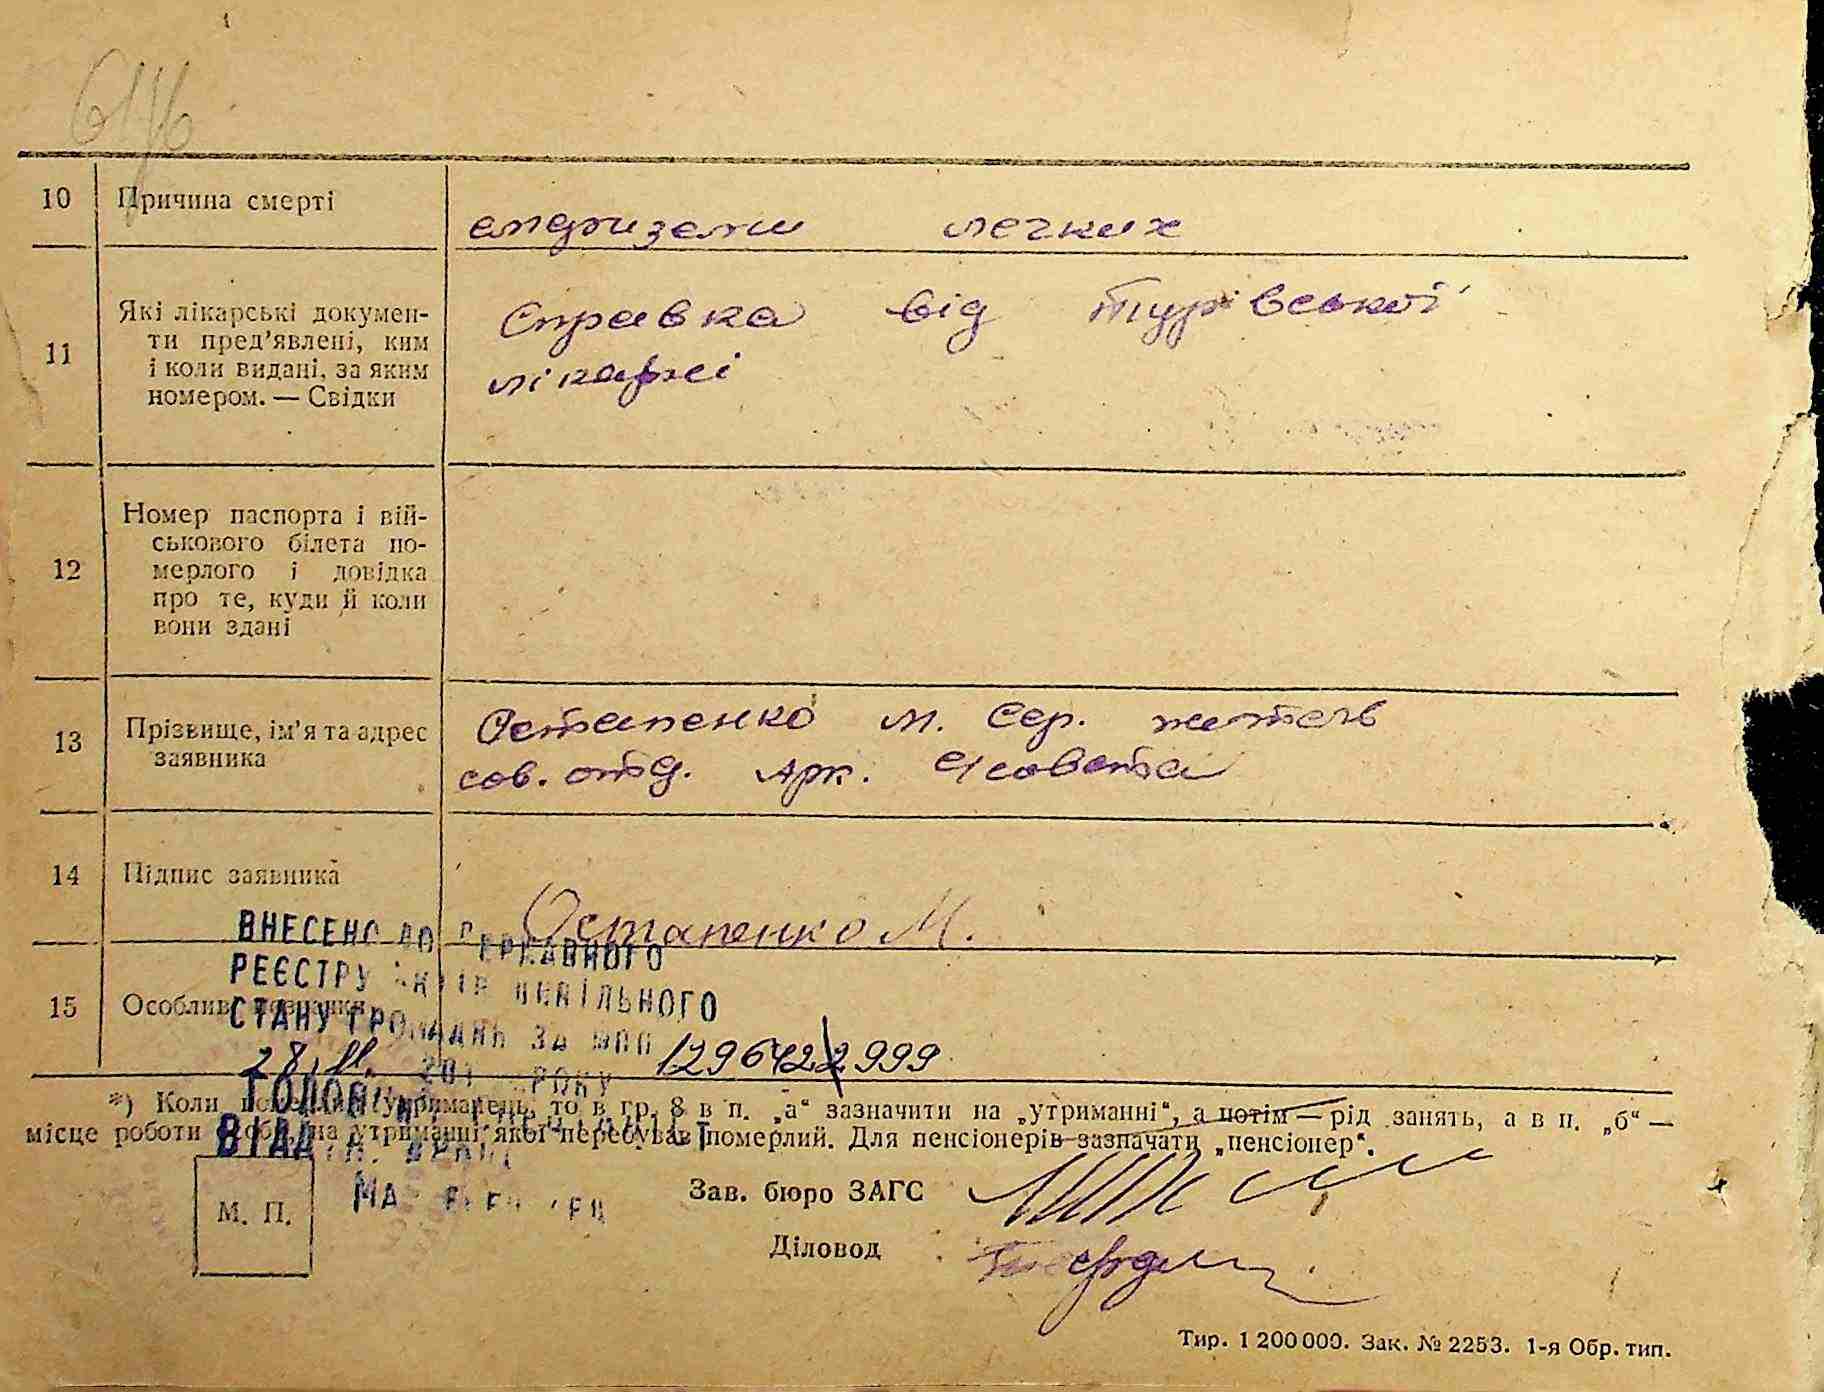 10 Причина смерті
емфиземи легких
11 Які лікарські докумен-
ти пред'явлені, ким
і коли видані, за яким
номером. — Свідки
Справка від Турівської
лікарні
12 Номер паспорта і вій-
ськового білета по-
мерлого і довідка
про те, куди й коли
вони здані
13 Прізвище, ім'я та адрес
заявника
Остапенко М. Сер. житель
сов. отд. Арк.
14 Підпис заявника
Остапенко М.
15 Особливі позначки
ВНЕСЕНО ДО ДЕРЖАВНОГО
РЕЄСТРУ АКТІВ ЦИВІЛЬНОГО
СТАНУ ГРОМАДЯН ЗА №
28.11. 201 РОКУ
*) Коли померлий утриманець, то в гр. 8 в п. „а“ зазначити на „утриманні“, а потім — рід занять, а в п. „б“ —
місце роботи особи, на утриманні якої перебував померлий. Для пенсіонерів зазначати „пенсіонер“.
М. П.
Зав. бюро ЗАГС
Діловод
Тир. 1 200 000. Зак. № 2253. 1-я Обр. тип.